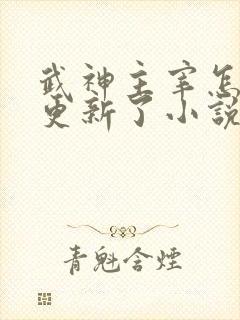 武神主宰怎
更新了小說
青魁含煙